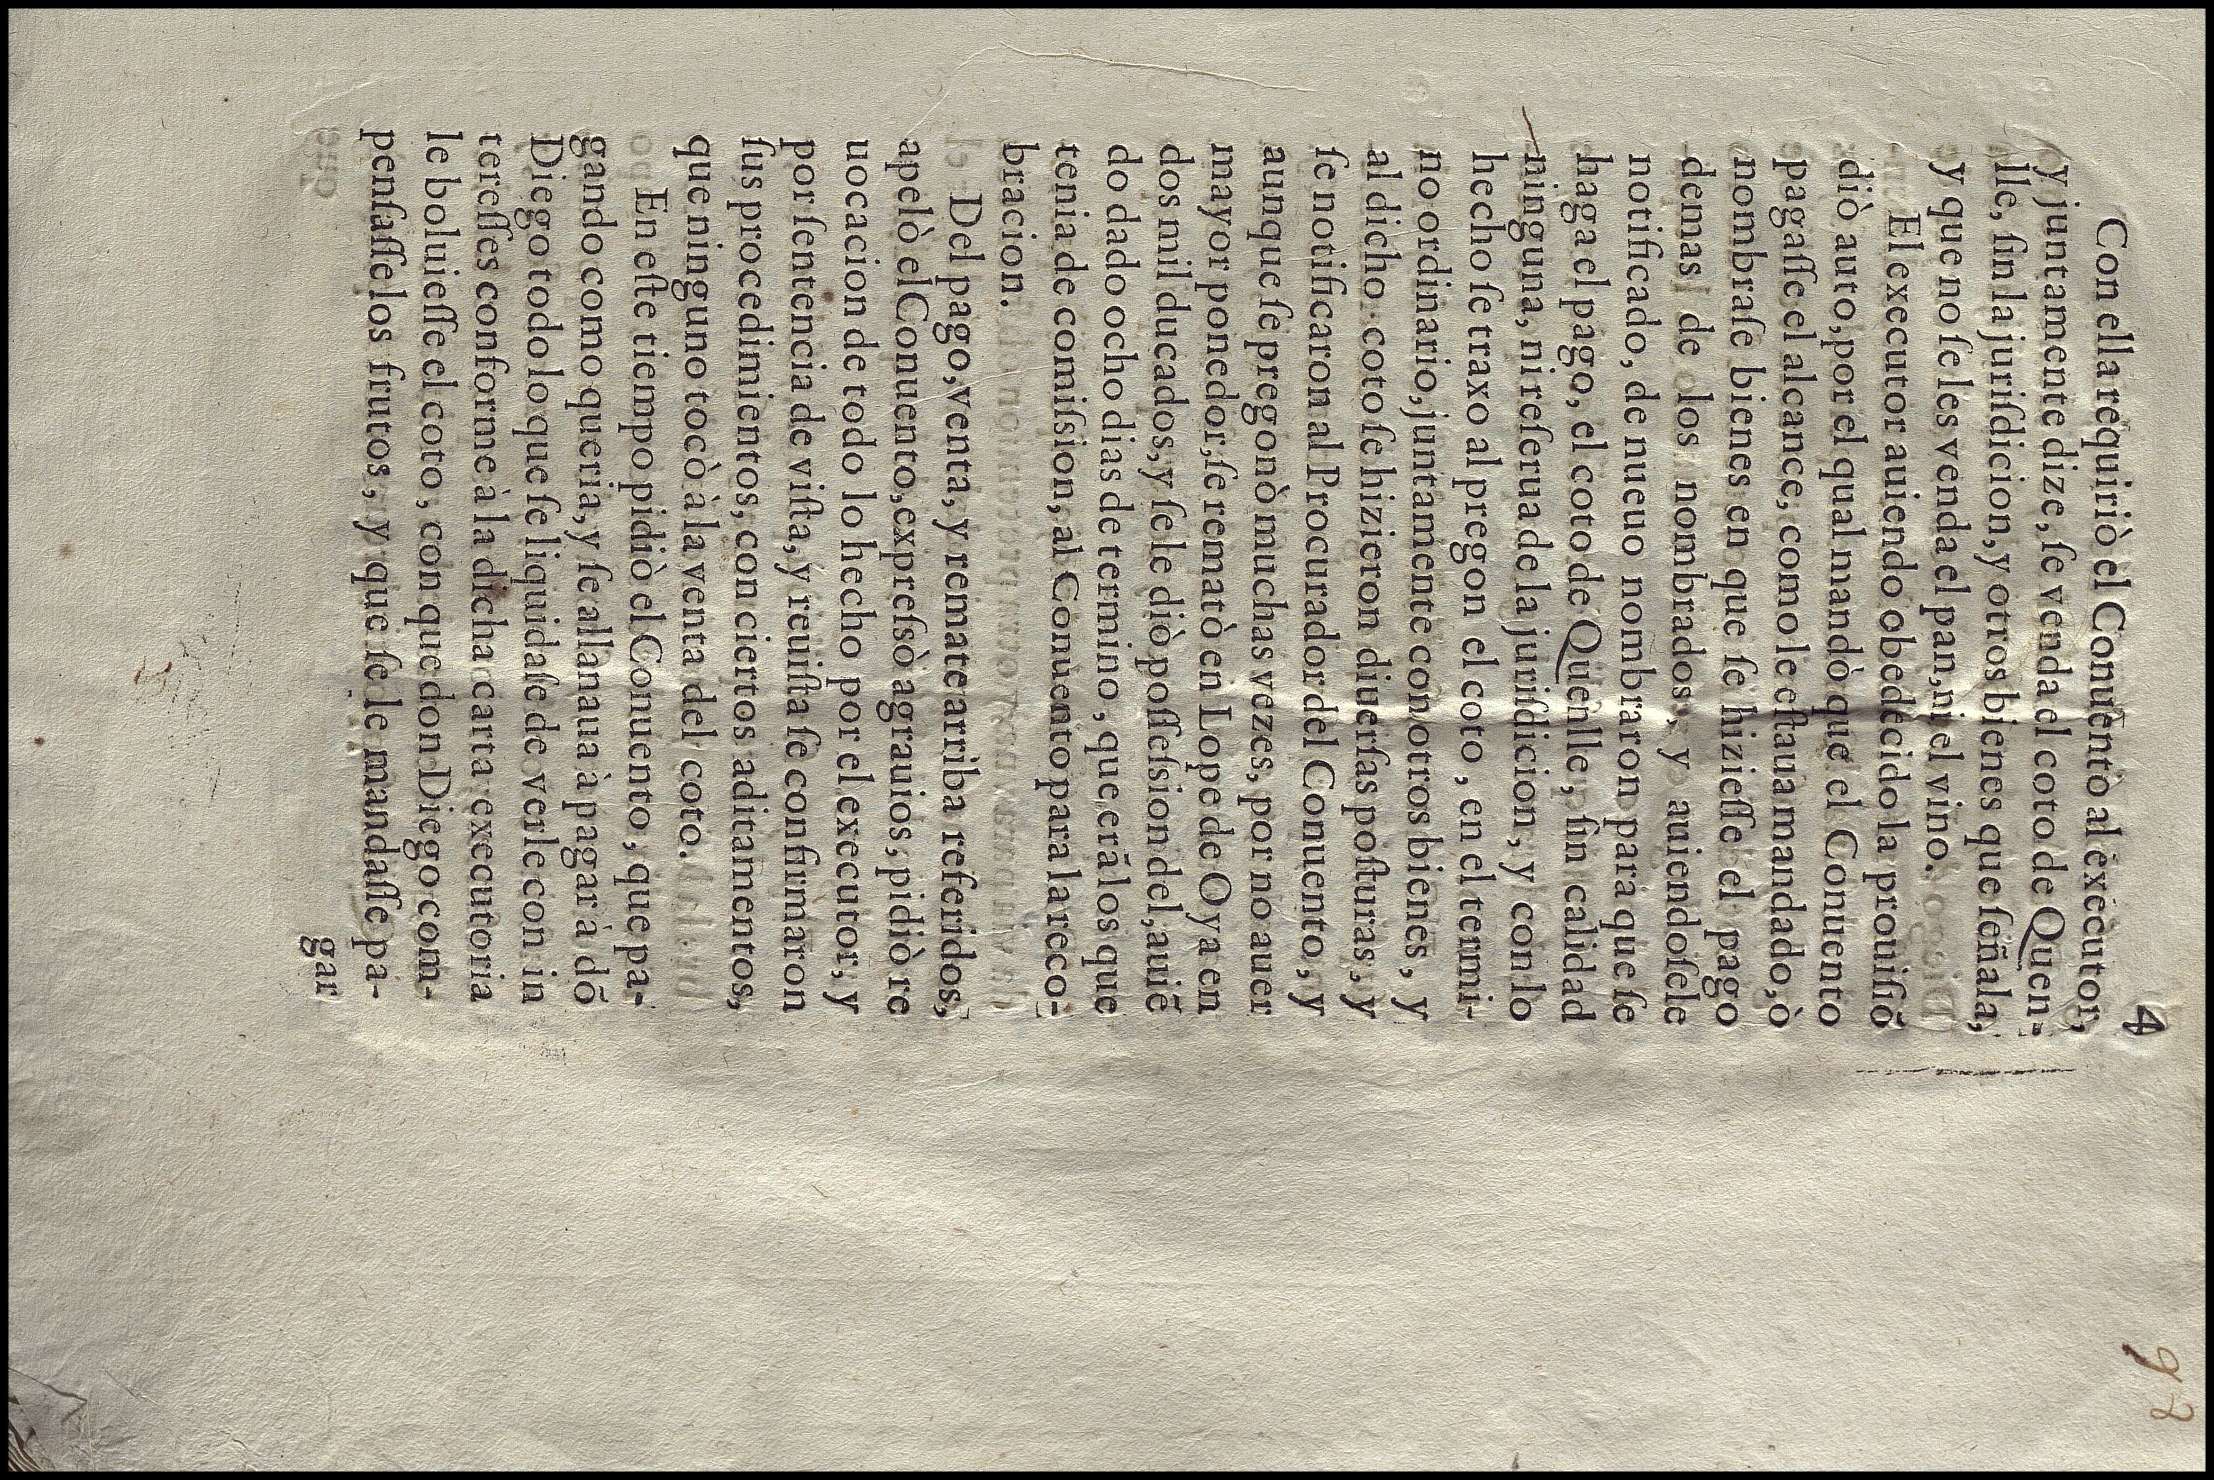 4
92
Con ella requiriò el Conuento al executor,
y juntamente dize, ſe venda el coto de Quen-
lle, ſin la juriſdicion, y otros bienes que ſeñala,
y que no ſe les venda el pan, ni el vino.
El executor auiendo obedecido la prouiſiõ
diò auto, por el qual mandò que el Conuento
pagaſſe el alcance, como le eſtaua mandado, ò
nombraſe bienes en que ſe hizieſſe el pago
demas de los nombrados, y auiendoſele
notificado, de nueuo nombraron para que ſe
haga el pago, el coto de Quenlle, ſin calidad
ninguna, ni reſerua de la juriſdicion, y con lo
hecho ſe traxo al pregon el coto, en el termi-
no ordinario, juntamente con otros bienes, y
al dicho coto ſe hizieron diuerſas poſturas, y
ſe notificaron al Procurador del Conuento, y
aunque ſe pregonò muchas vezes, por no auer
mayor ponedor, ſe rematò en Lope de Oya en
dos mil ducados, y ſe le diò poſſeſsion del, auiẽ
do dado ocho dias de termino, que erã los que
tenia de comiſsion, al Conuento para la reco-
bracion.
Del pago, venta, y remate arriba referidos,
apelò el Conuento, expreſsò agrauios, pidiò re
uocacion de todo lo hecho por el executor, y
por ſentencia de viſta, y reuiſta ſe confirmaron
ſus procedimientos, con ciertos aditamentos,
que ninguno tocò à la venta del coto.
En eſte tiempo pidiò el Conuento, que pa-
gando como queria, y ſe allanaua à pagar à dõ
Diego todo lo que ſe liquidaſe de verle con in
tereſſes conforme à la dicha carta executoria
le boluieſſe el coto, con que don Diego com-
penſaſſe los frutos, y que ſe le mandaſſe pa-
gar